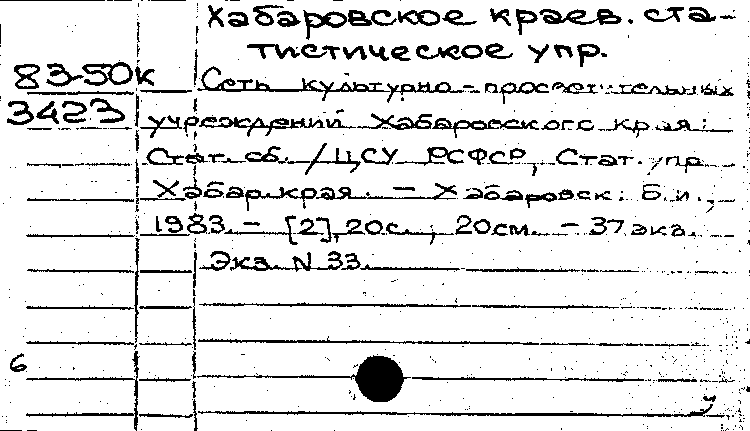 Хабаровское краев. ста-
тистическое упр.
83-50к
3423
Сеть культурно-просветительных
учреждений Хабаровского края:
Стат. сб. / ЦСУ РСФСР, Стат. упр
Хабар. края. - Хабаровск: Б.и.,
1983. - [2], 20с.; 20см. - 37 экз.
Экз. N 33.
6